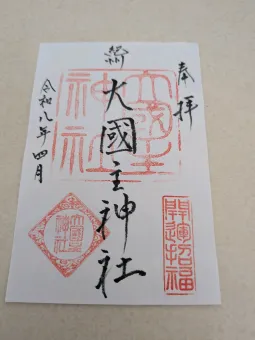 奉拝
紀州
大國主神社
令和八年四月
大國主神社
開運招福
大國主神社